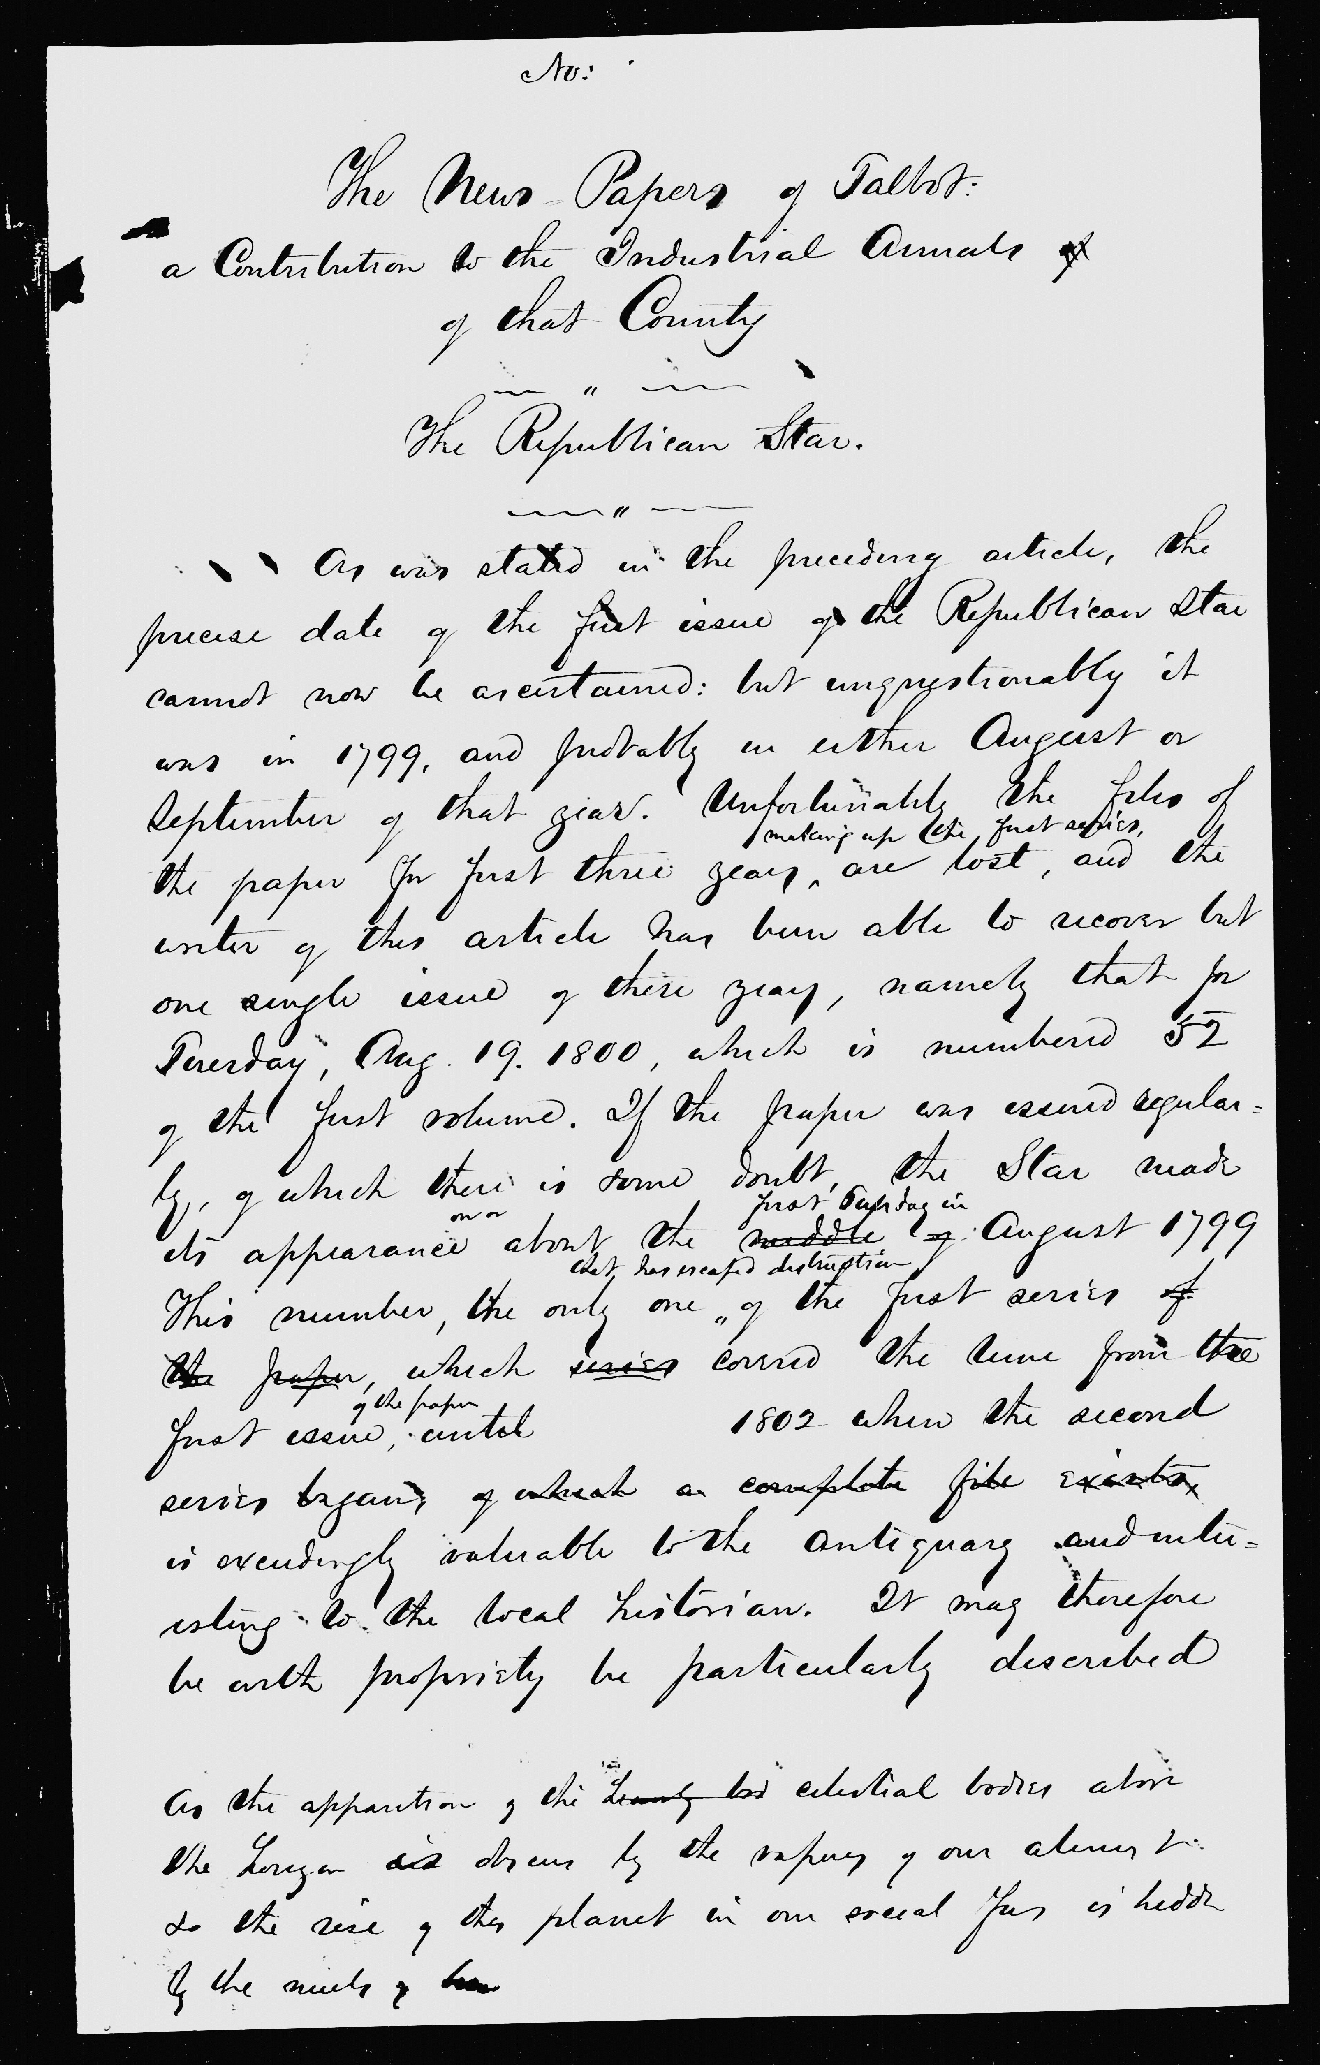 No:
The News Papers of Talbot:
a Contribution to the Industrial Annals of
of that County
The Republican Star.
As was stated in the preceding article, the
precise date of the first issue of the Republican Star
cannot now be ascertained: but unquestionably it
was in 1799, and probably in either August or
September of that year. Unfortunately the files of
making up the first series,
the paper for first three years, are lost, and the
writer of this article has been able to recover but
one single issue of these years, namely that for
Tuesday, Aug. 19. 1800, which is numbered 52
of the first volume. If the paper was issued regular=
ly, of which there is some doubt, the Star made
on or first Tuesday in
its appearance about the middle of August 1799
that has escaped destruction
This number, the only one of the first series of
the paper, which series covered the time from the
of the paper
first issue, until 1802 when the second
series began, of which a complete file exists,
is exceedingly valuable to the antiquary and inter=
esting to the local historian. It may therefore
be with propriety be particularly described
As the apparition of the celestial bodies above
the Horizon is by the vapors of our
so the rise of this planet in our social is
by the mists of